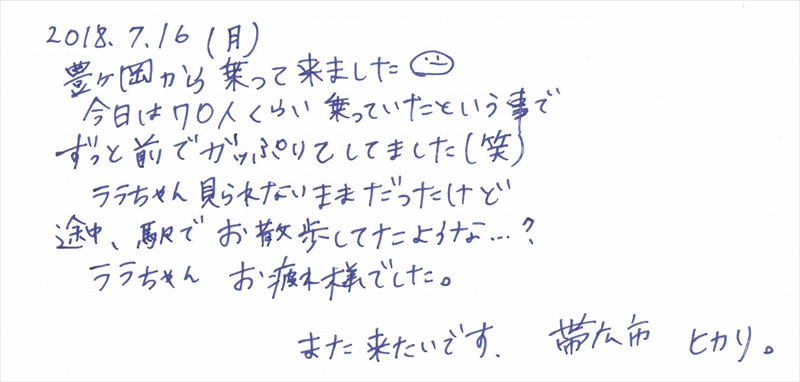 2018.7.16(月)
豊ヶ岡から乗って来ました
今日は70人くらい乗っていたという事で
ずっと前でガッぷりてしてました(笑)
ララちゃん見られないままだったけど
途中、駅でお散歩してたような…?
ララちゃん お疲れ様でした。
また来たいです. 帯広市 ヒカリ。